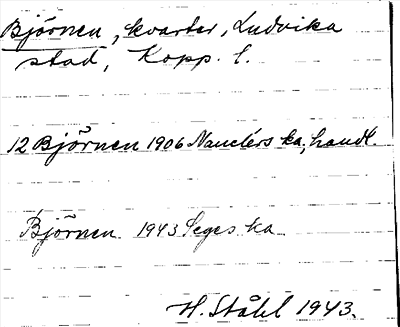 Björnen, kvarter, Ludvika
stad, Kopp. l.
12 Björnen 1906 Nanclérs ka, handl.
Björnen 1943 Seges ka
H. Ståhl 1943.